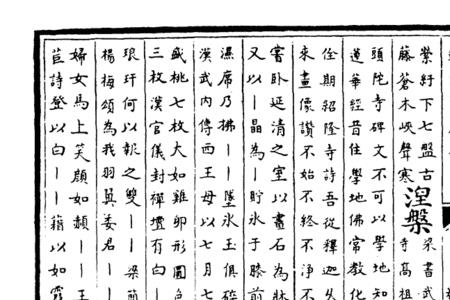 縈紆下七盤古
藤蒼木峽聲寒
涅槃
梁書武
寺高祖
頭陀寺碑文不可以學地知
道華經音住學地佛常教化
佺期紹隆寺詩吾從釋迦久
來畫像讚不始不終不淨不
嘗卧延清之室以畫石為牀
又以丨晶為丨貯氷于膝前
濕席乃拂丨丨墜氷玉俱碎
漢武内傳西王母以七月七
盛桃七枚大如雞卵形圓色
三枚漢官儀封禪壇有白丨
琅玕何以報之雙丨丨梁簡
楊梅頌為我羽翼委君丨丨
婦女馬上笑顔如赬丨丨王
苣詩登以白丨丨藉以如霞